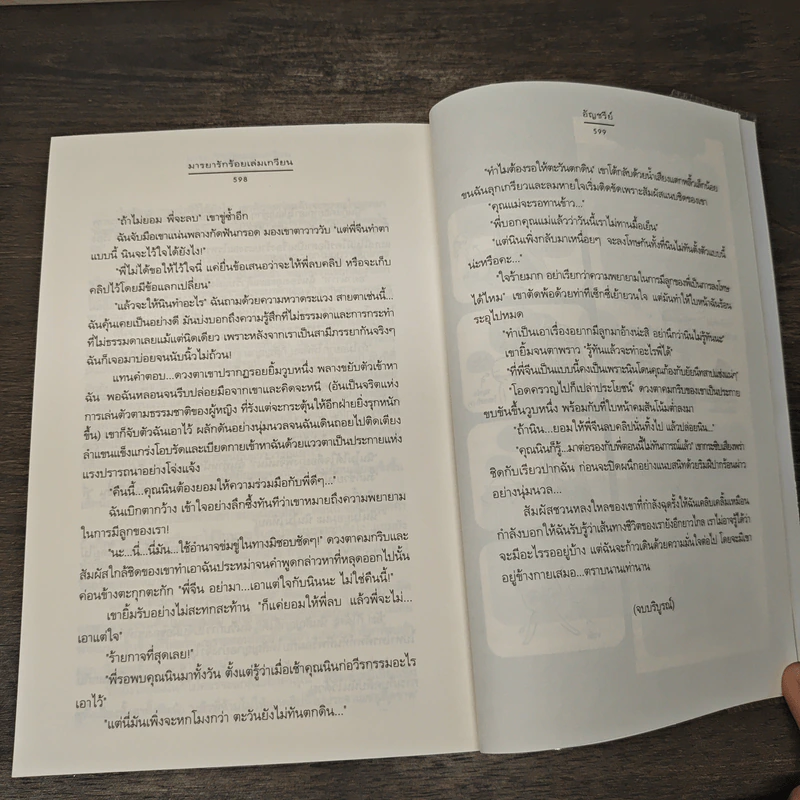 มารยารักร้อยเล่มเกวียน
598
"ถ้าไม่ยอม พี่จะลบ" เขาขู่ซ้ำอีก
ฉันจับมือเขาแน่นพลางกัดฟันกรอด มองเขาตาวาววับ "แต่พี่จีนทำตา
แบบนี้ นินจะไว้ใจได้ยังไง!"
"พี่ไม่ได้ขอให้ไว้ใจนี่ แค่ยื่นข้อเสนอว่าจะให้พี่ลบคลิป หรือจะเก็บ
คลิปไว้โดยมีข้อแลกเปลี่ยน"
"แล้วจะให้นินทำอะไร" ฉันถามด้วยความหวาดระแวง สายตาเช่นนี้...
ฉันคุ้นเคยเป็นอย่างดี มันบ่งบอกถึงความรู้สึกที่ไม่ธรรมดาและการกระทำ
ที่ไม่ธรรมดาเลยแม้แต่นิดเดียว เพราะหลังจากเราเป็นสามีภรรยากันจริงๆ
ฉันก็เจอมาบ่อยจนนับนิ้วไม่ถ้วน!
แทนคำตอบ...ดวงตาเขาปรากฏรอยยิ้มวูบหนึ่ง พลางขยับตัวเข้าหา
ฉัน พอฉันหลอนจนรีบปล่อยมือจากเขาและคิดจะหนี (อันเป็นจริตแห่ง
การเล่นตัวตามธรรมชาติของผู้หญิง ที่รังแต่จะกระตุ้นให้อีกฝ่ายยิ่งรุกหนัก
ขึ้น) เขาก็จับตัวฉันเอาไว้ ผลักดันอย่างนุ่มนวลจนฉันเดินถอยไปติดเตียง
ลำแขนแข็งแกร่งโอบรัดและเบียดกายเข้าหาฉันด้วยแววตาเป็นประกายแห่ง
แรงปรารถนาอย่างโจ่งแจ้ง
"คืนนี้...คุณนินต้องยอมให้ความร่วมมือกับพี่ดีๆ..."
ฉันเบิกตากว้าง เข้าใจอย่างลึกซึ้งทันทีว่าเขาหมายถึงความพยายาม
ในการมีลูกของเรา!
"นะ...นี่...นี่มัน...ใช้อำนาจข่มขู่ในทางมิชอบชัดๆ!" ดวงตาคมกริบและ
สัมผัสใกล้ชิดของเขาทำเอาฉันประหม่าจนคำพูดกล่าวหาที่หลุดออกไปนั้น
ค่อนข้างตะกุกตะกัก "พี่จีน อย่ามา...เอาแต่ใจกับนินนะ ไม่ใช่คืนนี้!"
เขายิ้มรับอย่างไม่สะทกสะท้าน "ก็แค่ยอมให้พี่ลบ แล้วพี่จะไม่...
เอาแต่ใจ"
"ร้ายกาจที่สุดเลย!"
"พี่รอพบคุณนินมาทั้งวัน ตั้งแต่รู้ว่าเมื่อเช้าคุณนินก่อวีรกรรมอะไร
เอาไว้"
"แต่นี่มันเพิ่งจะหกโมงกว่า ตะวันยังไม่ทันตกดิน..."
อัญชรีย์
599
"ทำไมต้องรอให้ตะวันตกดิน" เขาโต้กลับด้วยน้ำเสียงแตกพลิ้วเล็กน้อย
ขนฉันลุกเกรียวและลมหายใจเริ่มติดขัดเพราะสัมผัสแนบชิดของเขา
"คุณแม่จะรอทานข้าว..."
"พี่บอกคุณแม่แล้วว่าวันนี้เราไม่ทานมื้อเย็น"
"แต่นินเพิ่งกลับมาเหนื่อยๆ จะลงโทษกันทั้งที่นินไม่ทันตั้งตัวแบบนี้
น่ะหรือคะ..."
"ใจร้ายมาก อย่าเรียกว่าความพยายามในการมีลูกของพี่เป็นการลงโทษ
ได้ไหม" เขาตัดพ้อด้วยท่าทีเซ็กซี่เย้ายวนใจ แต่มันทำให้ใบหน้าฉันร้อน
ระอุไปหมด
"ทำเป็นเอาเรื่องอยากมีลูกมาอ้างน่ะสิ อย่านึกว่านินไม่รู้ทันนะ"
เขายิ้มจนตาพราว "รู้ทันแล้วจะทำอะไรพี่ได้"
"ที่พี่จีนเป็นแบบนี้คงเป็นเพราะนินโดนคุณก้องภัยยันนิทสาปแช่งแน่ๆ"
"โอดครวญไปก็เปล่าประโยชน์" ดวงตาคมกริบของเขาเป็นประกาย
ขบขันขึ้นวูบหนึ่ง พร้อมกับที่ใบหน้าคมสันโน้มต่ำลงมา
"ถ้านิน...ยอมให้พี่จีนลบคลิปนั่นทิ้งไป แล้วปล่อยนิน..."
"คุณนินก็รู้...มาต่อรองกับพี่ตอนนี้ไม่ทันการณ์แล้ว" เขากระซิบเสียงพร่า
ชิดกับเรียวปากฉัน ก่อนจะปิดผนึกอย่างแนบสนิทด้วยริมฝีปากร้อนผ่าว
อย่างนุ่มนวล...
สัมผัสชวนหลงใหลของเขาที่กำลังฉุดรั้งให้ฉันเคลิบเคลิ้มเหมือน
กำลังบอกให้ฉันรับรู้ว่าเส้นทางชีวิตของเรายังอีกยาวไกล เราไม่อาจรู้ได้ว่า
จะมีอะไรรออยู่บ้าง แต่ฉันจะก้าวเดินด้วยความมั่นใจต่อไป โดยจะมีเขา
อยู่ข้างกายเสมอ...ตราบนานเท่านาน
(จบบริบูรณ์)